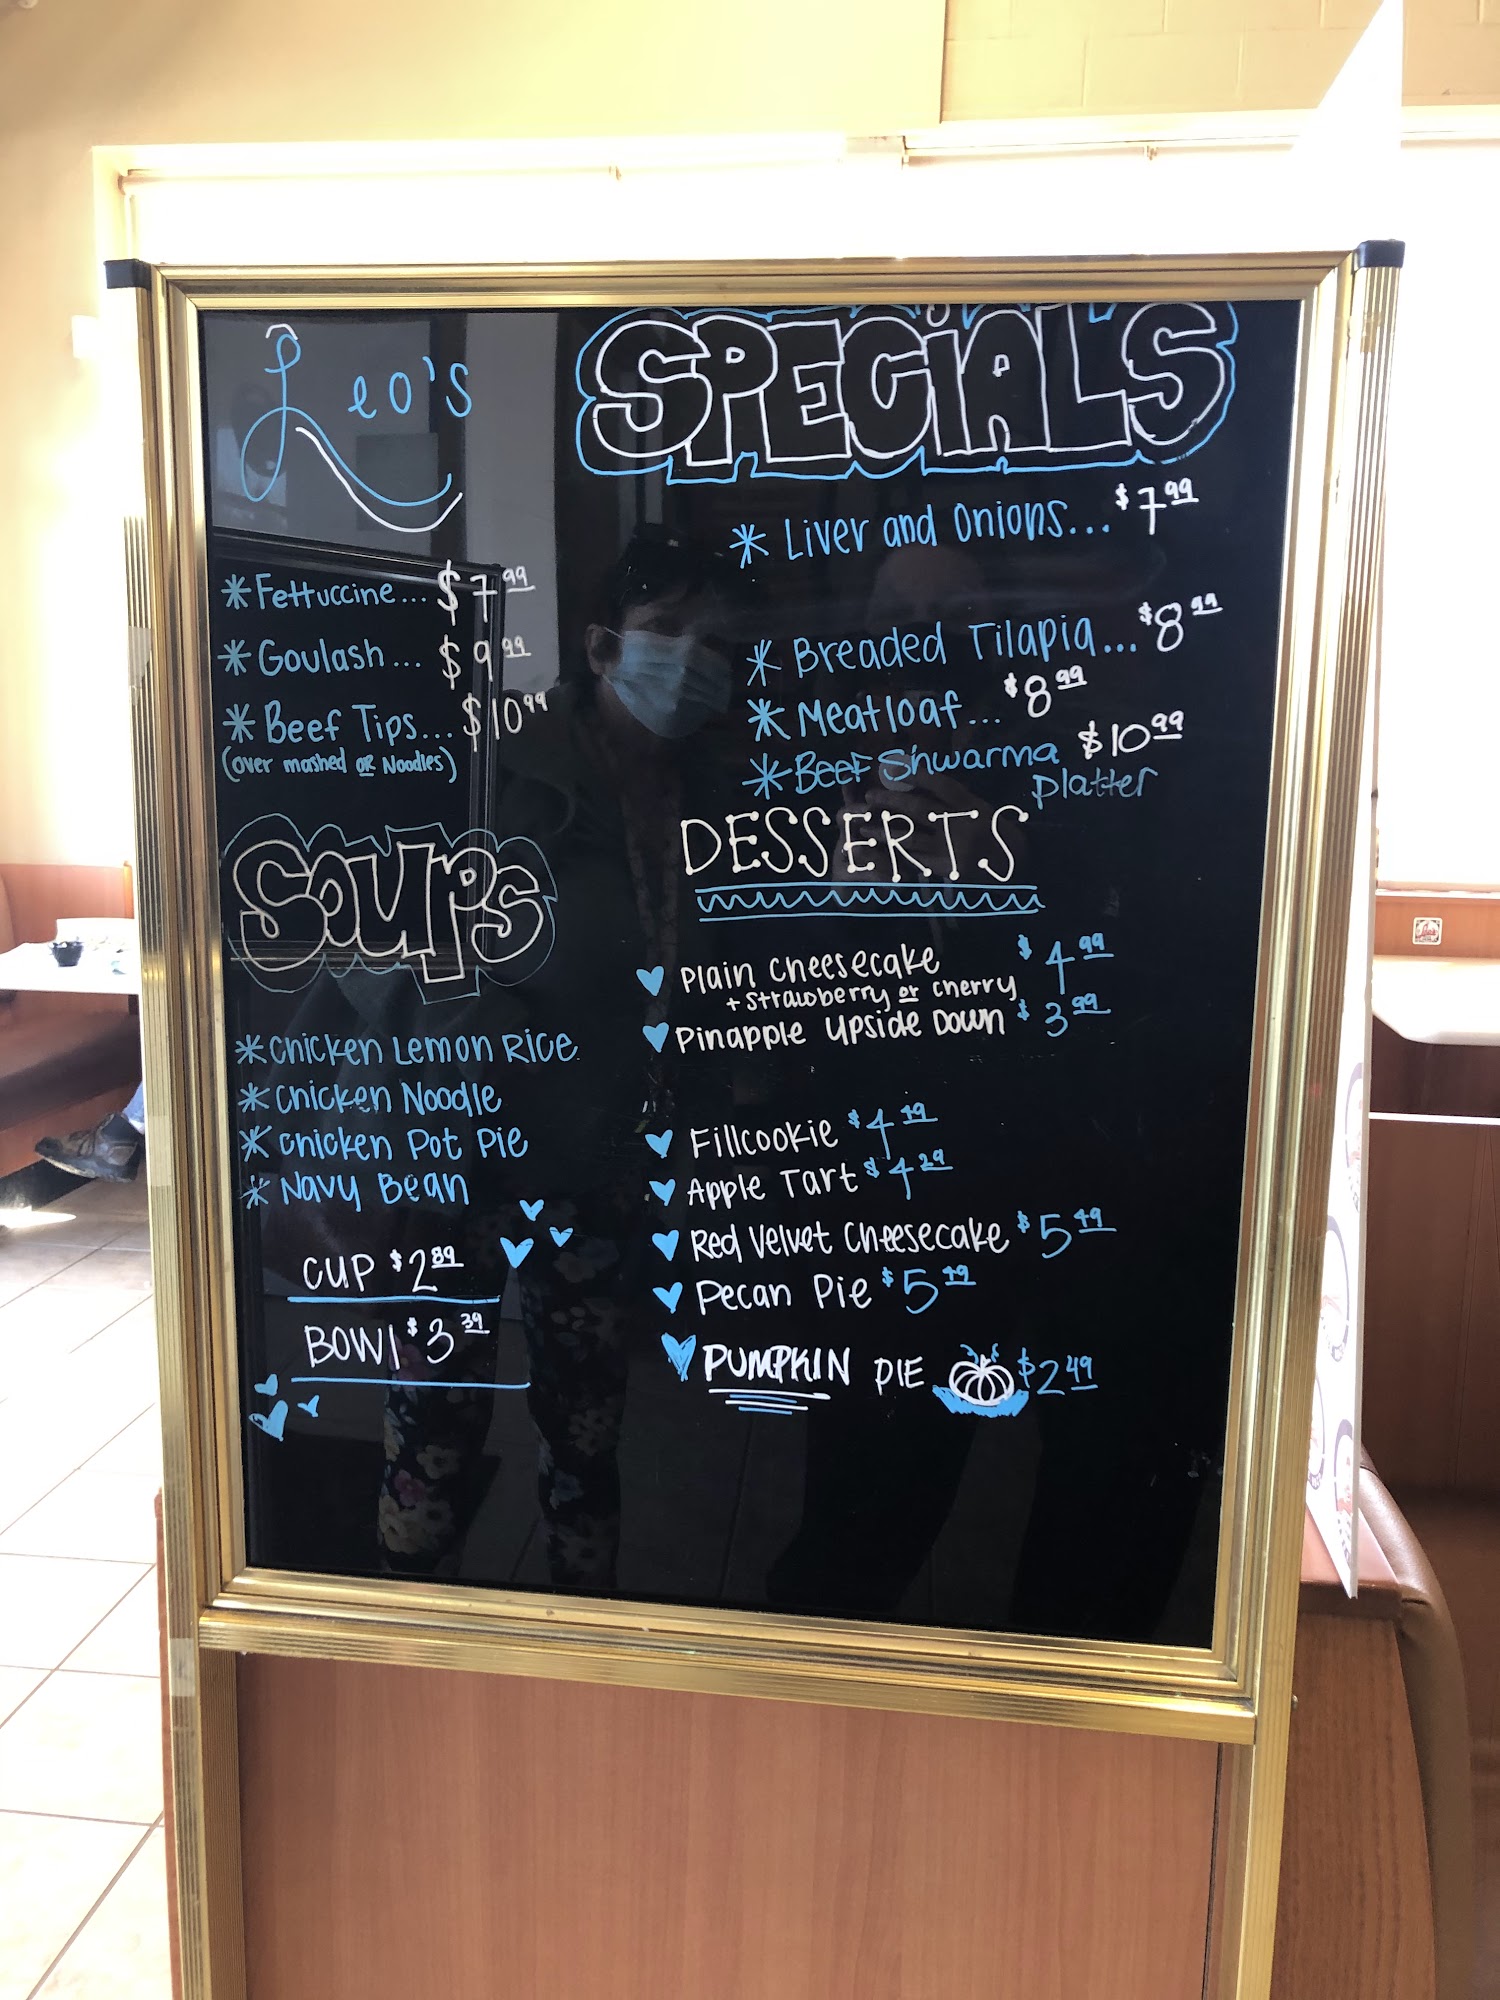 Leo's
SPECIALS
* Fettuccine... $7.99
* Goulash... $9.99
* Beef Tips... $10.99
(over mashed OR Noodles)
* Liver and Onions... $7.99
* Breaded Tilapia... $8.99
* Meatloaf... $8.99
* Beef Shwarma $10.99
Platter
SOUPS
* Chicken Lemon Rice
* Chicken Noodle
* Chicken Pot Pie
* Navy Bean
CUP $2.89
BOWl $3.39
DESSERTS
Plain Cheesecake $4.99
+ Strawberry or Cherry
Pinapple Upside Down $3.99
Fillcookie $4.49
Apple Tart $4.29
Red Velvet Cheesecake $5.49
Pecan Pie $5.49
PUMPKIN PIE $2.49